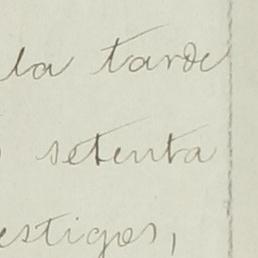 la tarde
setenta
estigos,